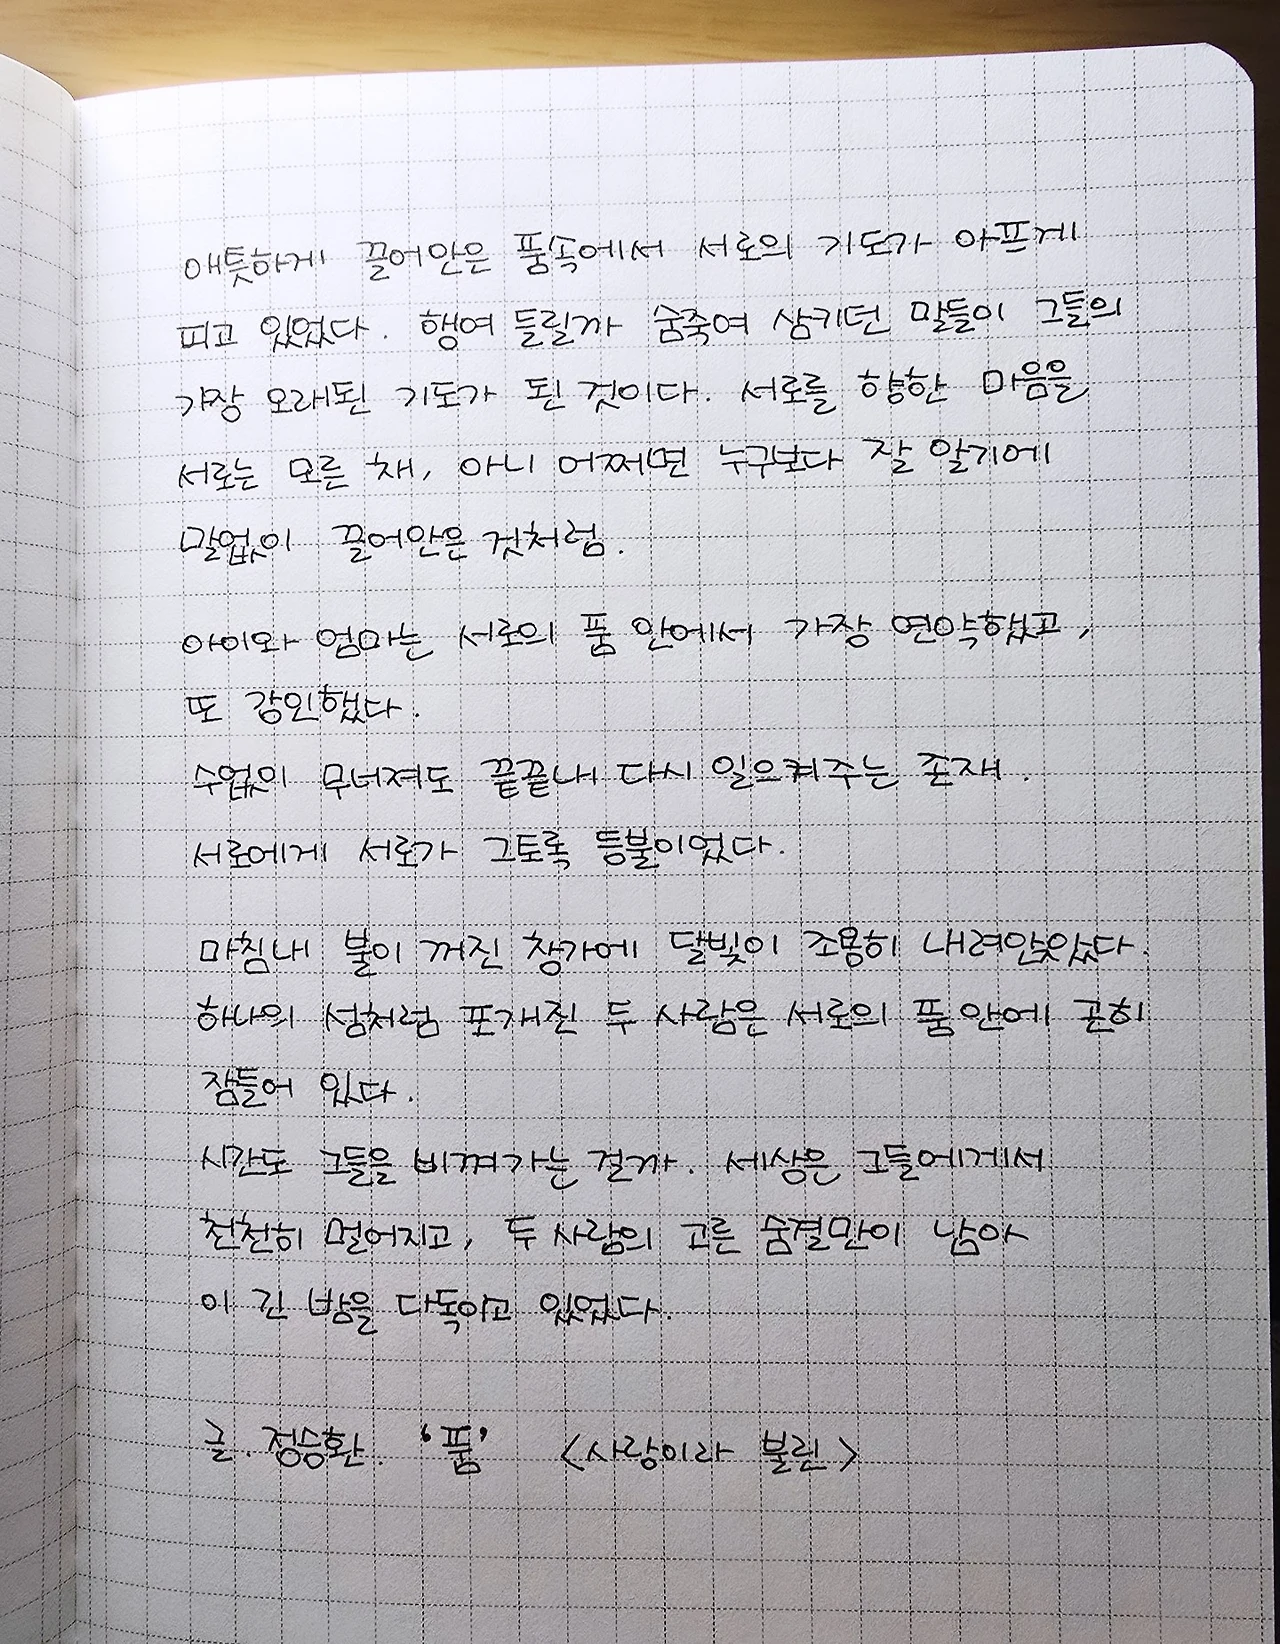 애틋하게 끌어안은 품속에서 서로의 기도가 아프게
피고 있었다. 행여 들릴까 숨죽여 삼키던 말들이 그들의
가장 오래된 기도가 된 것이다. 서로를 향한 마음을
서로는 모른 채, 아니 어쩌면 누구보다 잘 알기에
말없이 끌어안은 것처럼.
아이와 엄마는 서로의 품 안에서 가장 연약했고,
또 강인했다.
수없이 무너져도 끝끝내 다시 일으켜주는 존재.
서로에게 서로가 그토록 등불이었다.
마침내 불이 꺼진 창가에 달빛이 조용히 내려앉았다.
하나의 섬처럼 포개진 두 사람은 서로의 품 안에 곤히
잠들어 있다.
시간도 그들을 비껴가는 걸까. 세상은 그들에게서
천천히 멀어지고, 두 사람의 고른 숨결만이 남아
이 긴 밤을 다독이고 있었다.
글. 정승환. '품' <사랑이라 불린>